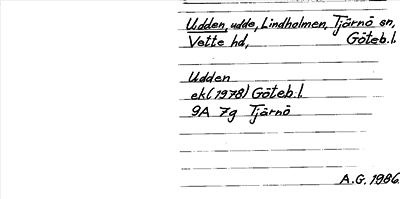 Udden, udde, Lindholmen, Tjärnö sn,
Vette hd, Göteb.l.
Udden
ek(1978) Göteb.l.
9A 7g Tjärnö
A.G. 1986.